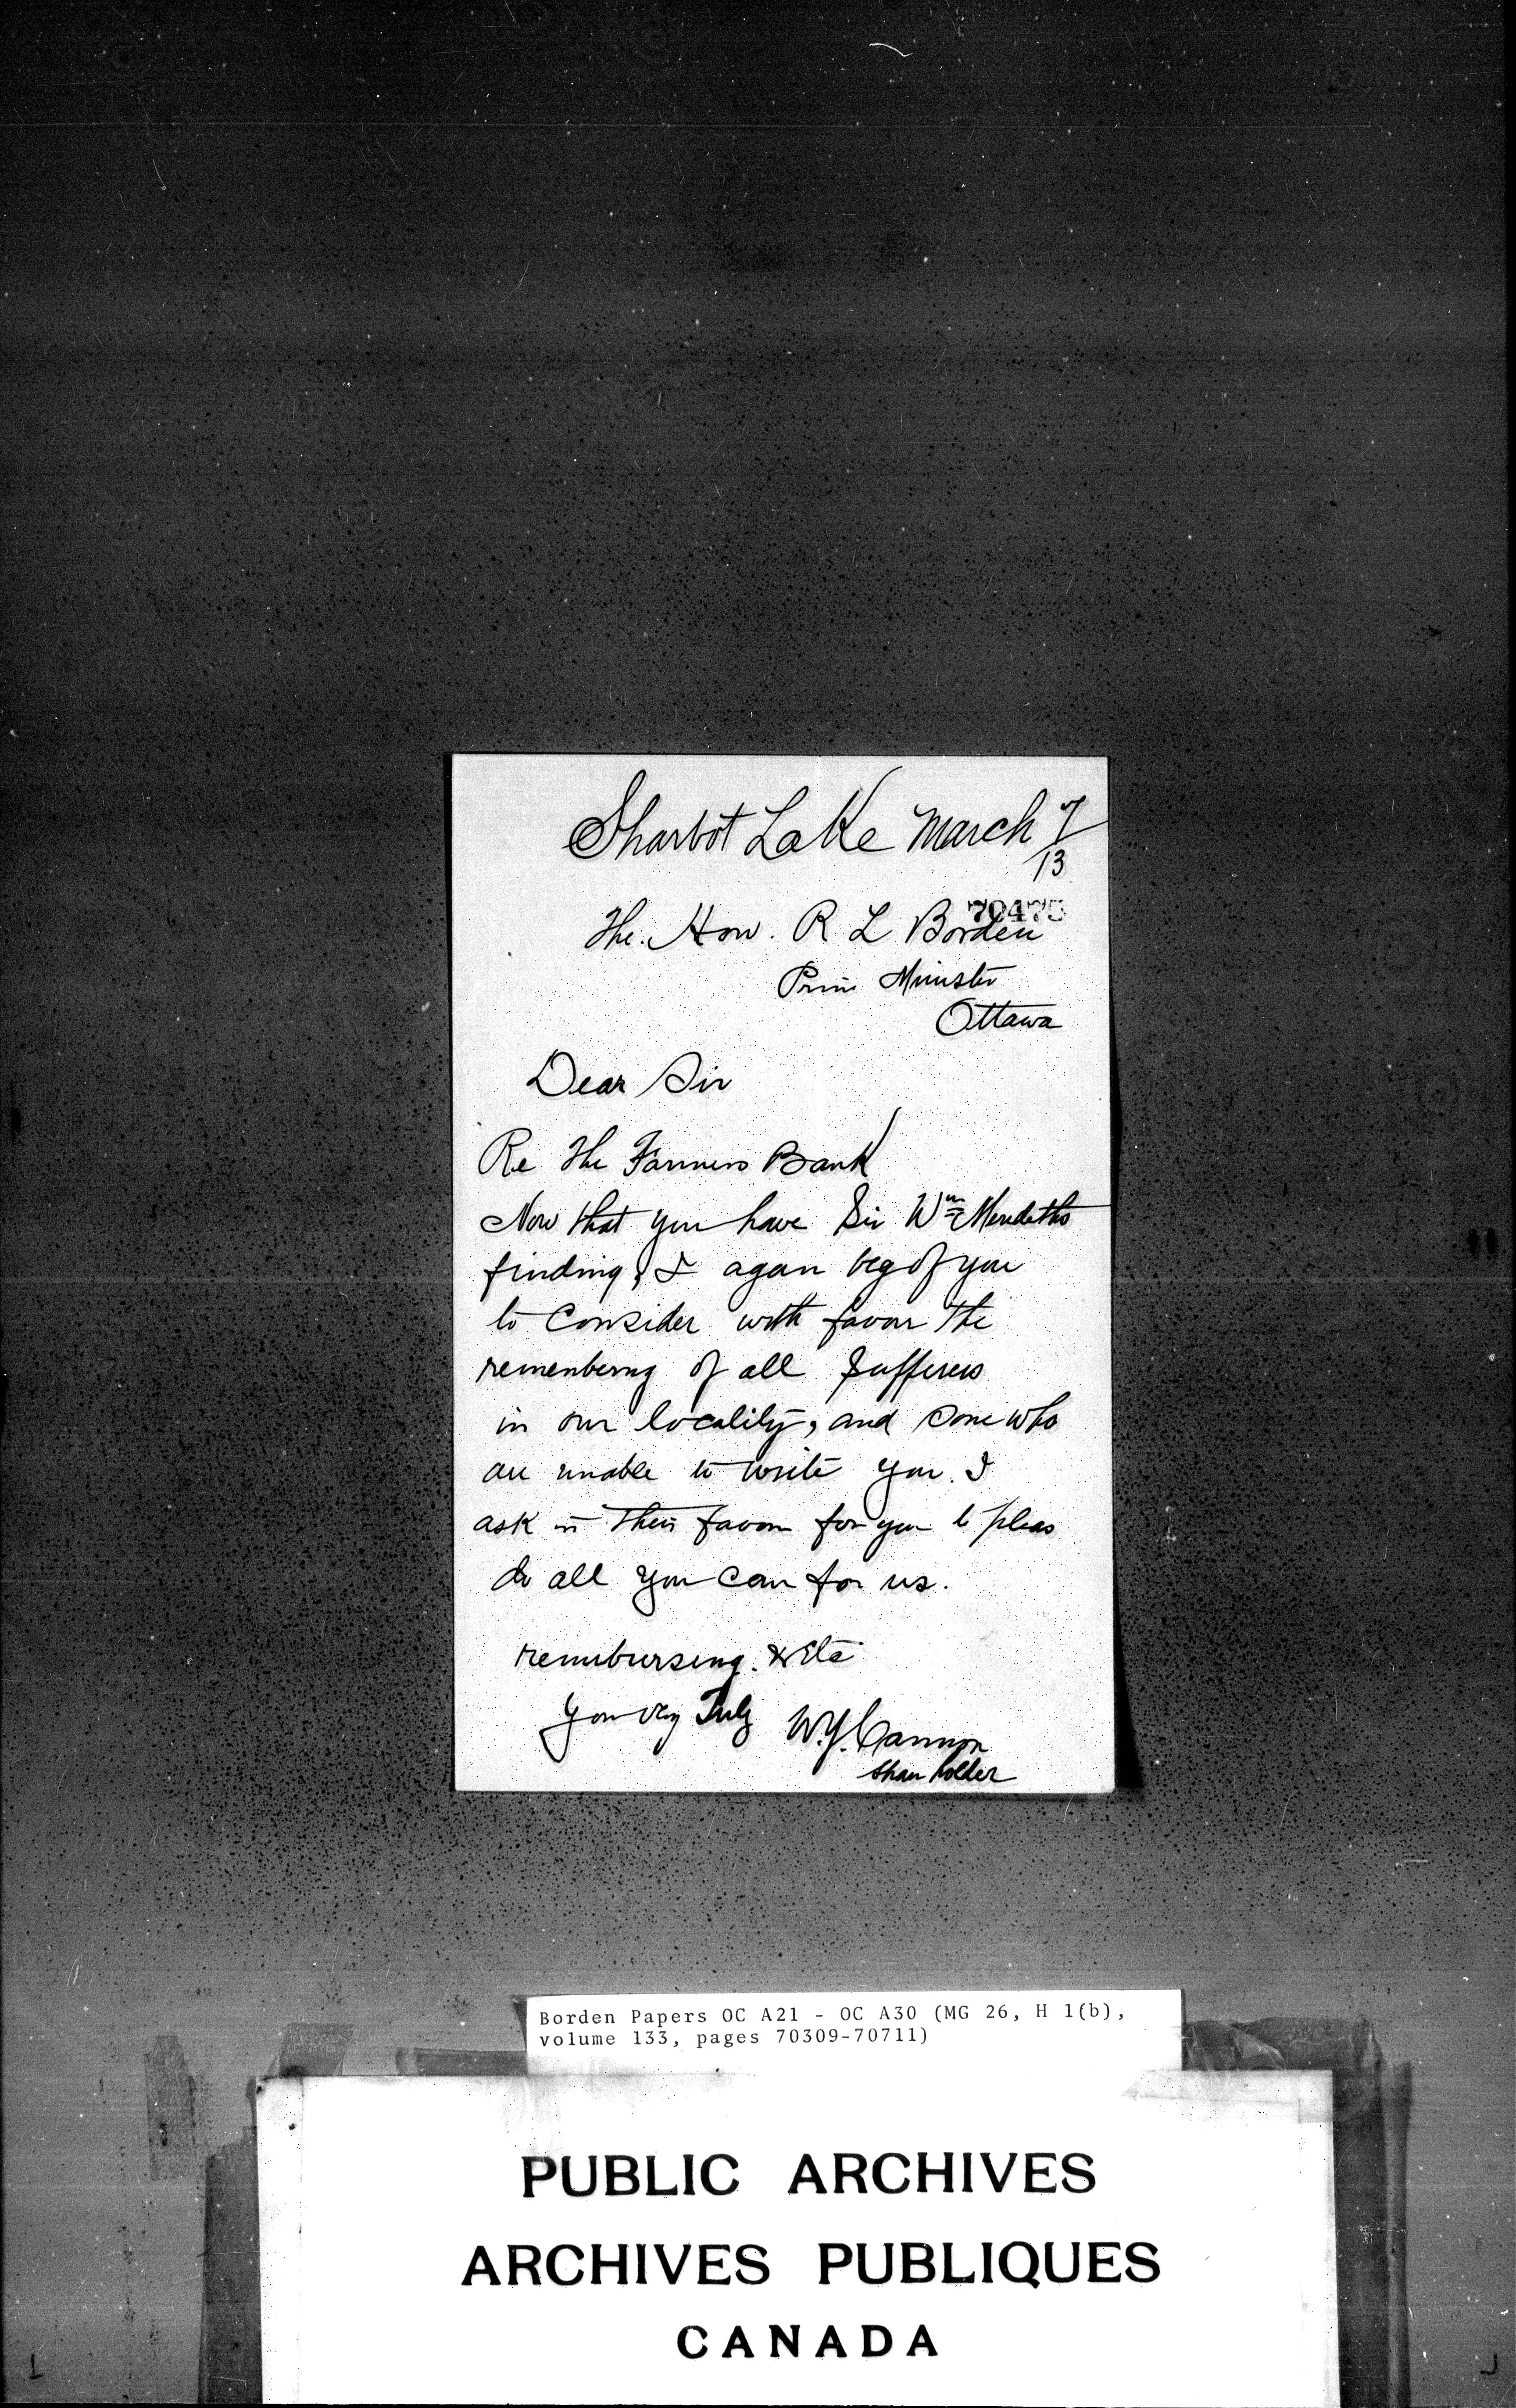 Sharbot Lake March 7/13
70475
The. Hon. R L Borden
Prim Minister
Ottawa
Dear Sir
Re The Farmers Bank
Now that you have Sir Wm Merediths
finding, I again beg of you
to Consider with favor the
remembering of all Sufferers
in our locality, and some who
are unable to write you. I
ask in their favor for you to pleas
do all you can for us.
remibursing. & Etc
Your very Truly W.Y. Cannon
Share holder
Borden Papers OC A21 - OC A30 (MG 26, H 1(b),
volume 133, pages 70309-70711)
PUBLIC ARCHIVES
ARCHIVES PUBLIQUES
CANADA